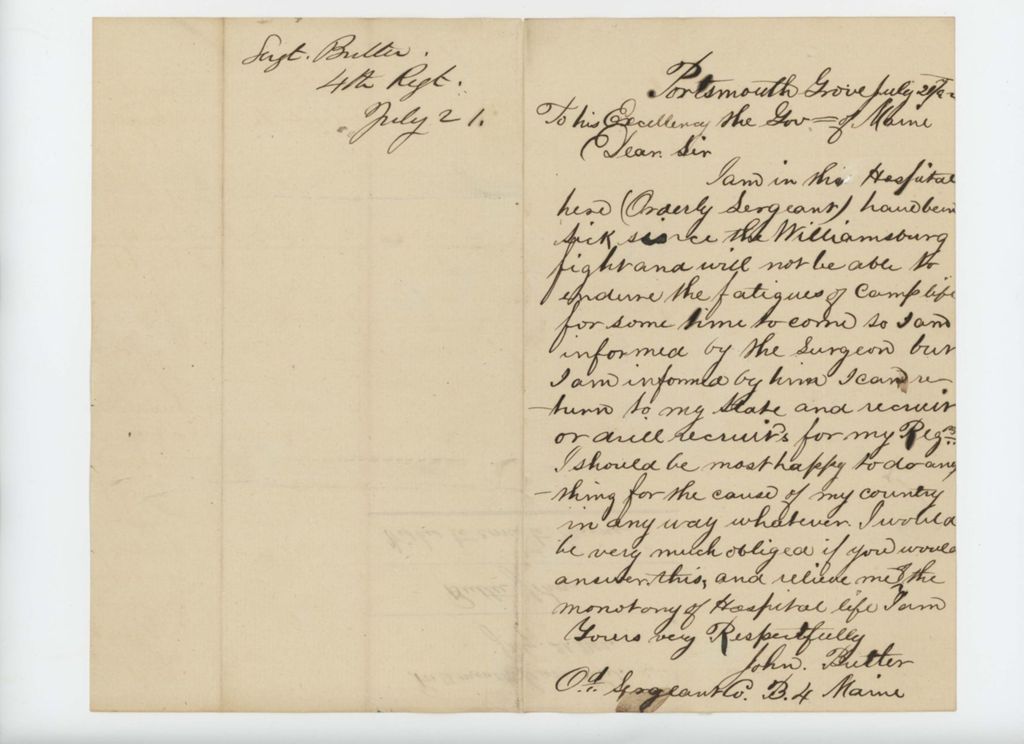 Sergt. Butler.
4th Regt.
July 21.
Portsmouth Grove July 21st
To his Excellency the Gov= of Maine
Dear Sir
I am in the Hospital
here (Orderly Sergeant) have been
sick since the Williamsburg
fight and will not be able to
endure the fatigues of Camp life
for some time to come so I am
informed by the Surgeon but
I am informed by him I can re-
-turn to my State and recruit
or drill recruits for my Regt
I should be most happy to do any
-thing for the cause of my country
in any way whatever. I would
be very much obliged if you would
answer this, and relieve me of the
monotony of Hospital life I am
Yours very Respectfully
John. Butler
Od. Sergeant Co. B. 4 Maine